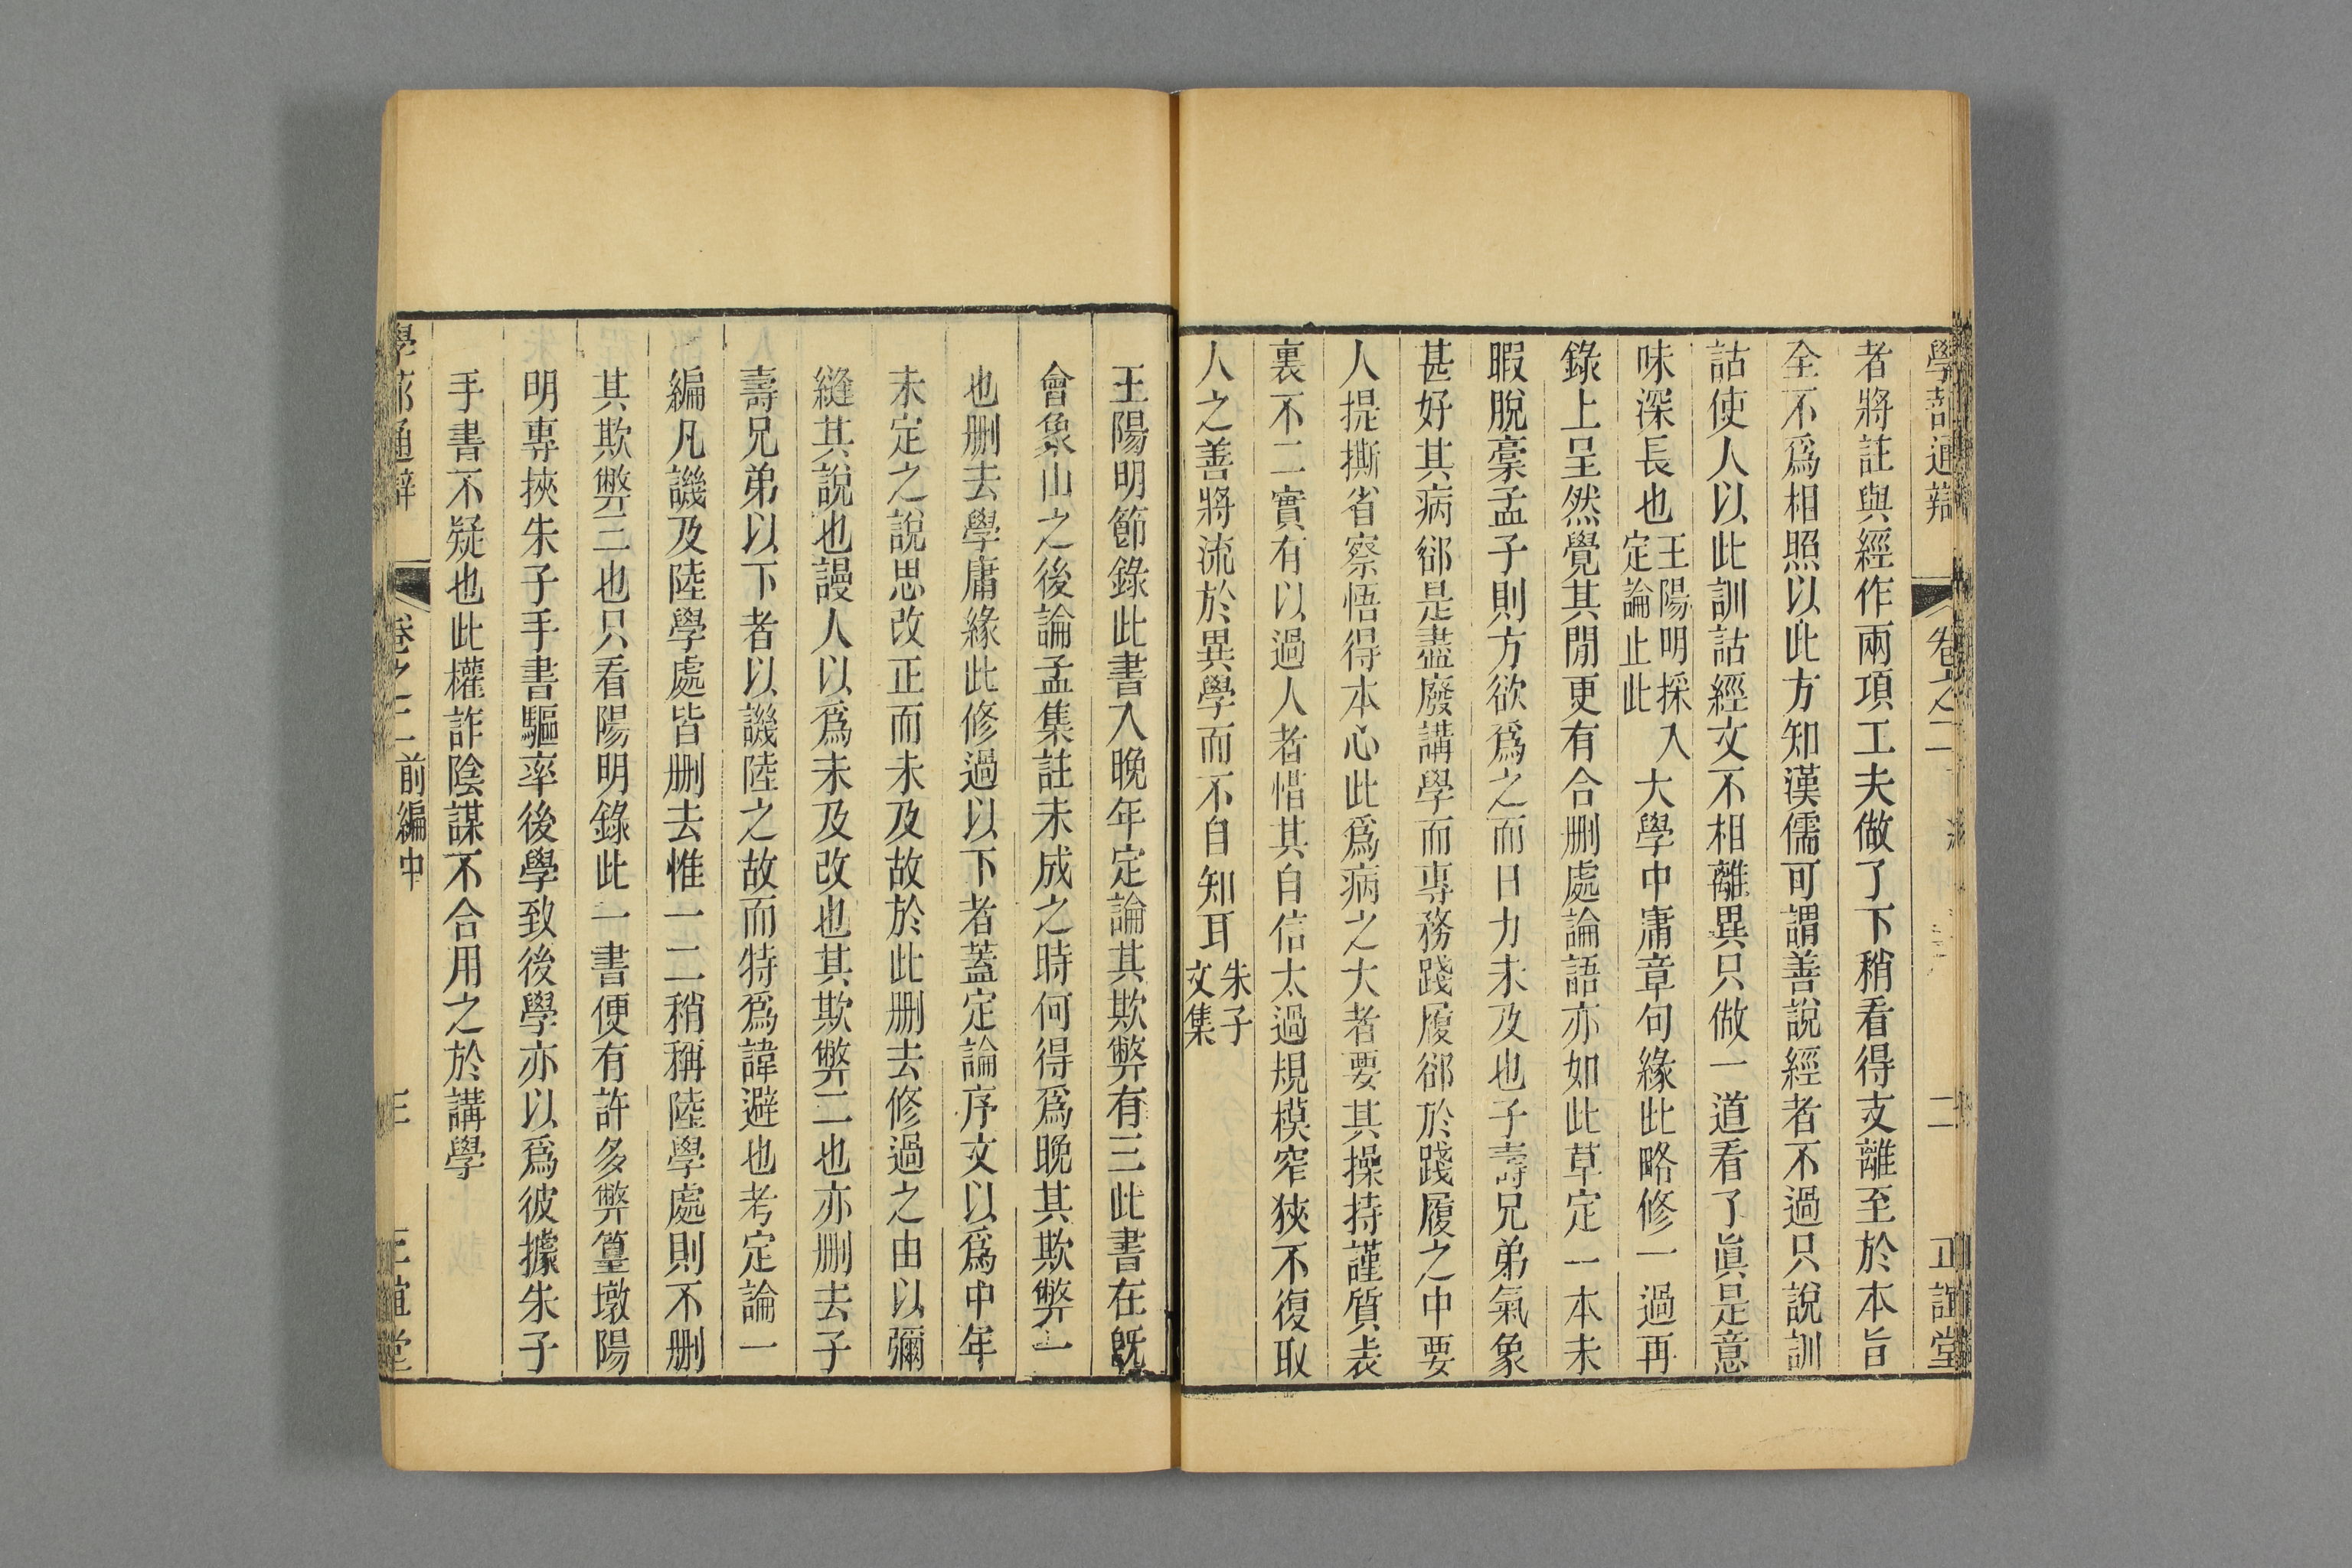 學蔀通辯 卷之二 二 正誼堂
者將註與經作兩項工夫做了下稍看得支離至於本旨
全不爲相照以此方知漢儒可謂善說經者不過只說訓
詁使人以此訓詁經文不相離異只做一道看了眞是意
味深長也王陽明採入定論止此大學中庸章句緣此略修一過再
錄上呈然覺其閒更有合刪處論語亦如此草定一本未
暇脫稾孟子則方欲爲之而日力未及也子壽兄弟氣象
甚好其病卻是盡廢講學而專務踐履卻於踐履之中要
人提撕省察悟得本心此爲病之大者要其操持謹質表
裏不二實有以過人者惜其自信太過規模窄狹不復取
人之善將流於異學而不自知耳朱子文集
王陽明節錄此書入晚年定論其欺弊有三此書在旣
會象山之後論孟集註未成之時何得爲晚其欺弊一
也刪去學庸緣此修過以下者蓋定論序文以爲中年
未定之說思改正而未及故於此刪去修過之由以彌
縫其說也謾人以爲未及改也其欺弊二也亦刪去子
壽兄弟以下者以譏陸之故而特爲諱避也考定論一
編凡譏及陸學處皆刪去惟一二稍稱陸學處則不刪
其欺弊三也只看陽明錄此一書便有許多弊篁墩陽
明專挾朱子手書驅率後學致後學亦以爲彼據朱子
手書不疑也此權詐陰謀不合用之於講學
學蔀通辯 卷之二前編中 三 正誼堂